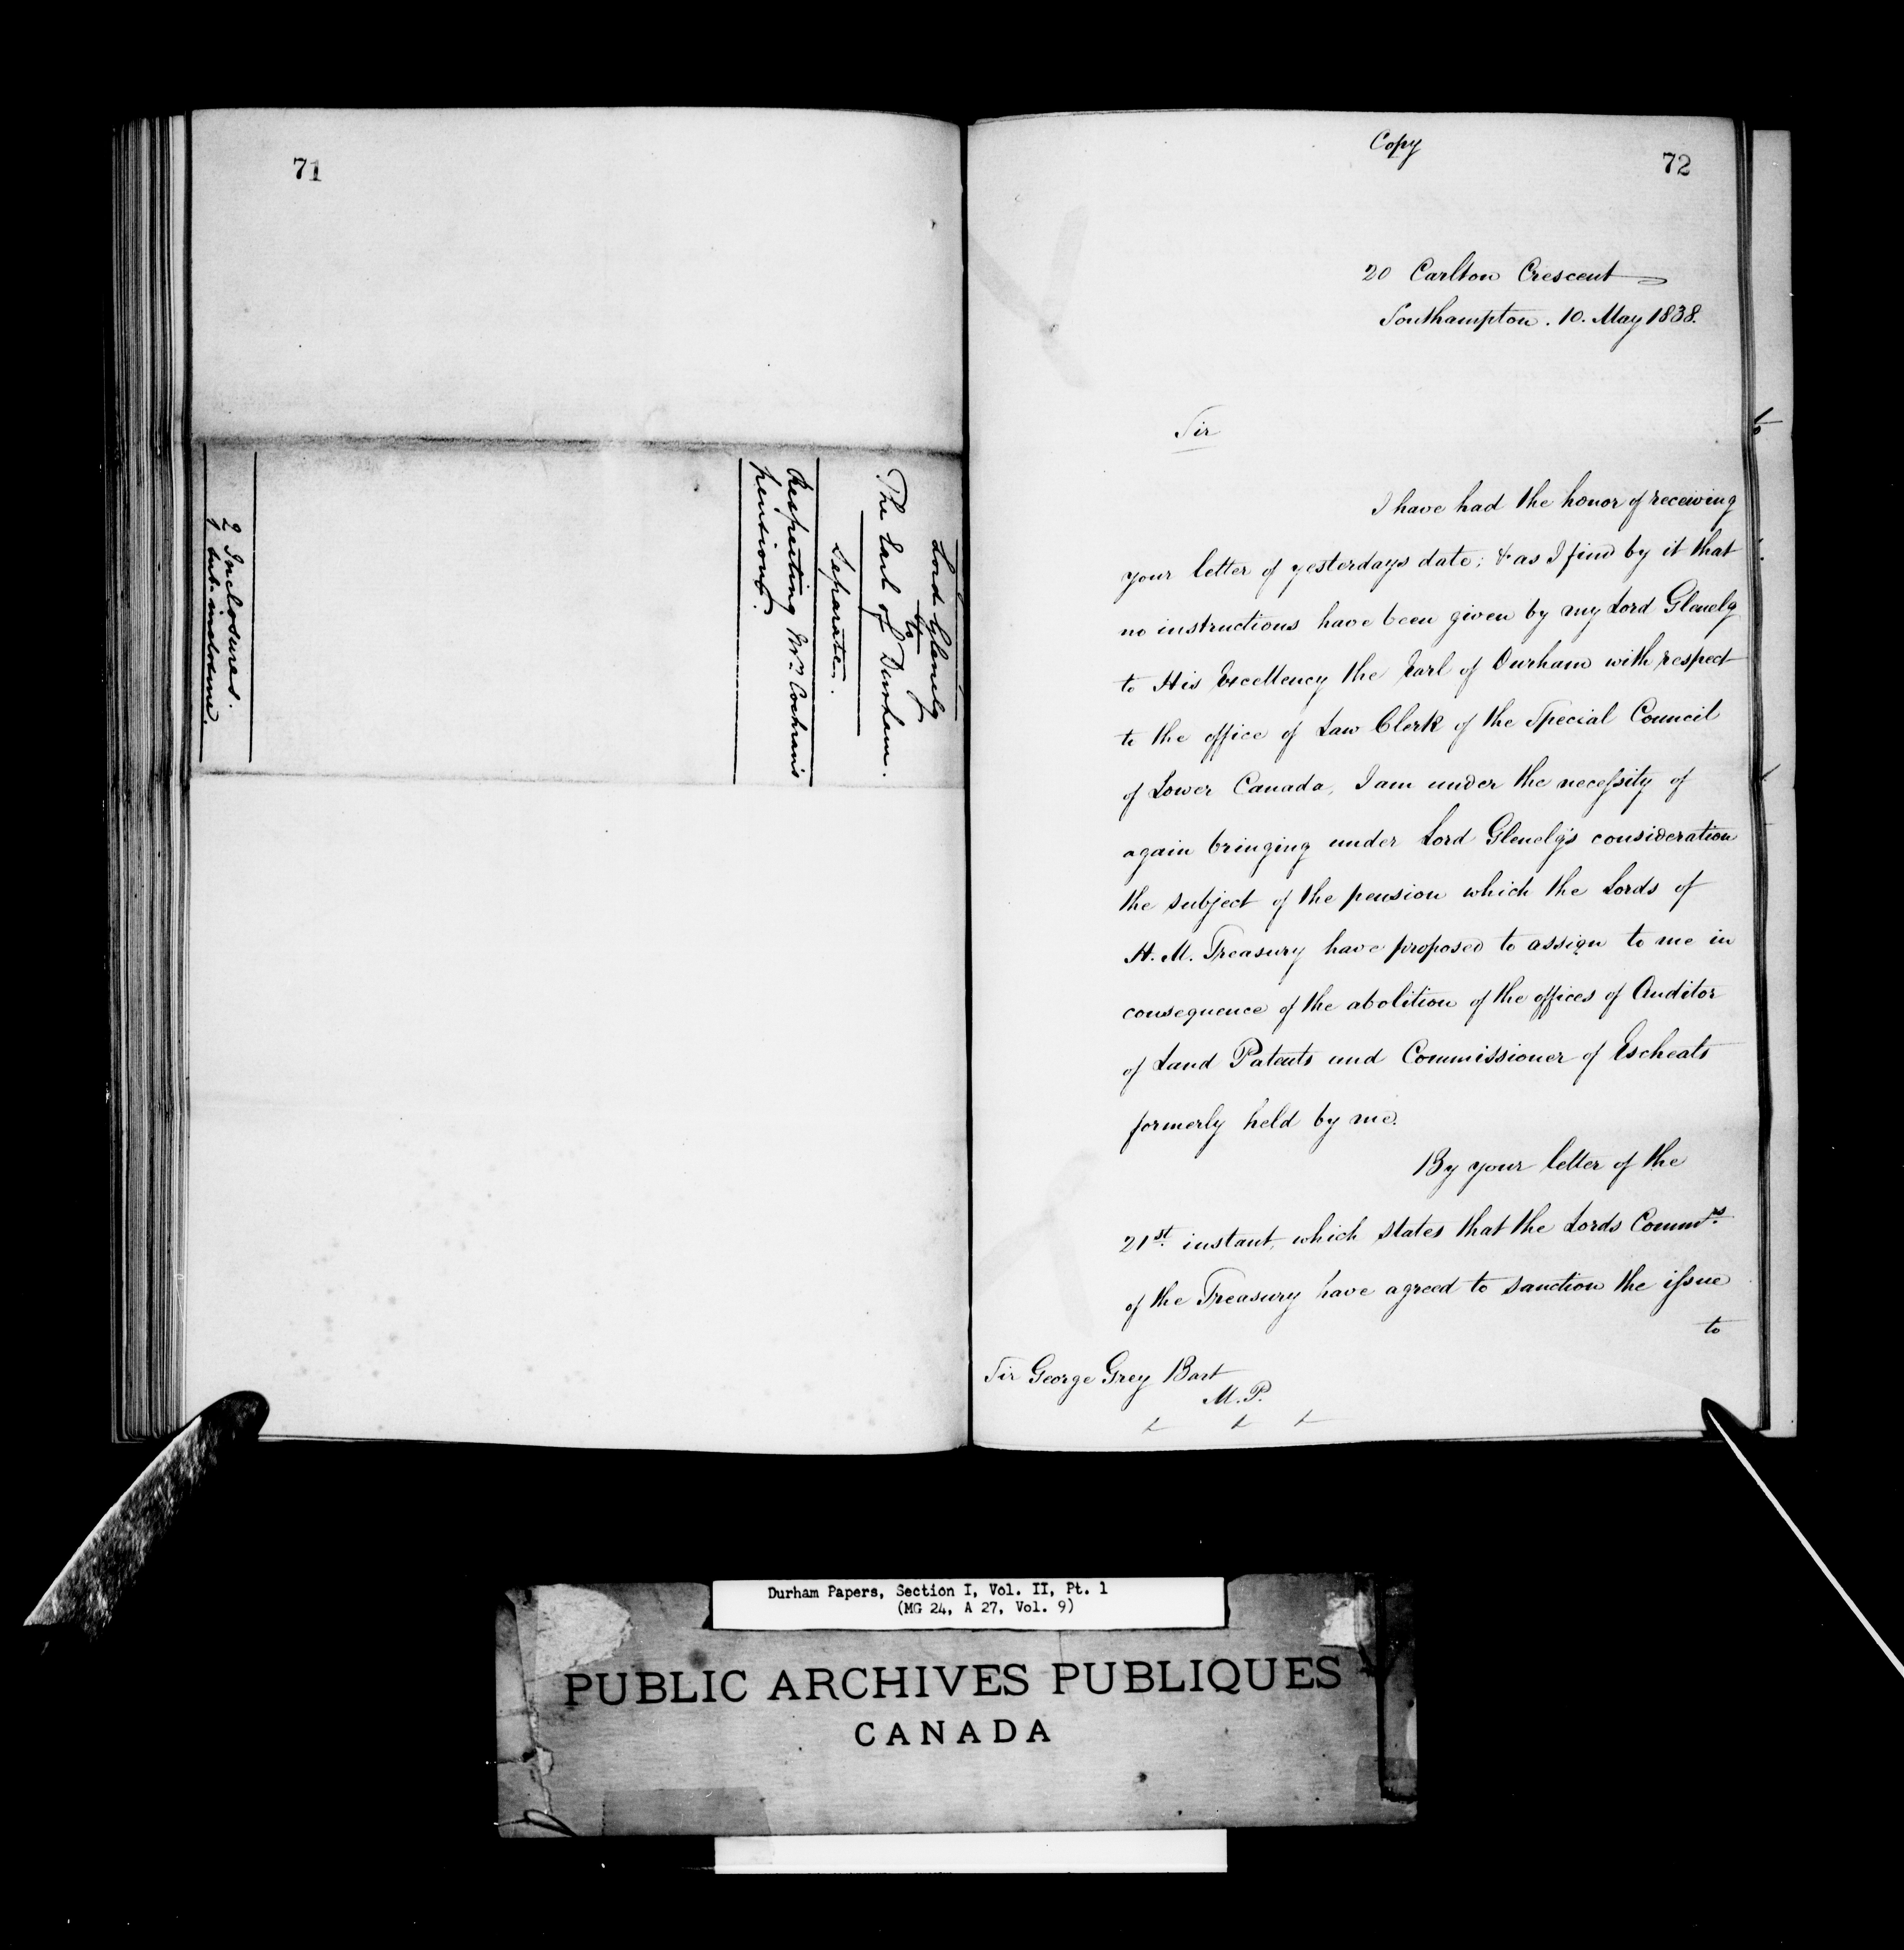 71
Lord Glenelg
to
The Earl of Durham.
Separate.
Respecting Mr. Cochran's
pension.
2 Inclosures.
1 sub-inclosure.
Copy
72
20 Carlton Crescent
Southampton. 10. May 1838.
Sir
I have had the honor of receiving
your letter of yesterdays date; & as I find by it that
no instructions have been given by my Lord Glenelg
to His Excellency the Earl of Durham with respect
to the office of Law Clerk of the Special Council
of Lower Canada, I am under the necessity of
again bringing under Lord Glenelg's consideration
the subject of the pension which the Lords of
H. M. Treasury have proposed to assign to me in
consequence of the abolition of the offices of Auditor
of Land Patents and Commissioner of Escheats
formerly held by me.
By your letter of the
21st. instant, which states that the Lords Commrs.
of the Treasury have agreed to sanction the issue
to
Sir George Grey Bart
M.P.
Durham Papers, Section I, Vol. II, Pt. 1
(MG 24, A 27, Vol. 9)
PUBLIC ARCHIVES PUBLIQUES
CANADA